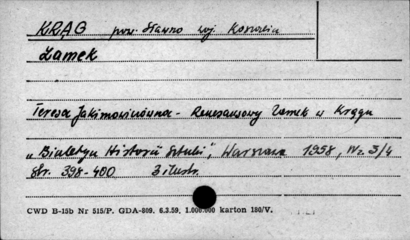 KRĄG pow. Sławno woj. Koszalin
Zamek
Teresa Jakimowiczówna - Renesansowy Zamek w Krągu
"Biuletyn Historii Sztuki", Warszawa 1958, Nr. 3/4
str. 398-400 3 ilustr.
CWD B-15b Nr 515/P. GDA-809. 6.3.59. 1.000.000 karton 180/V.